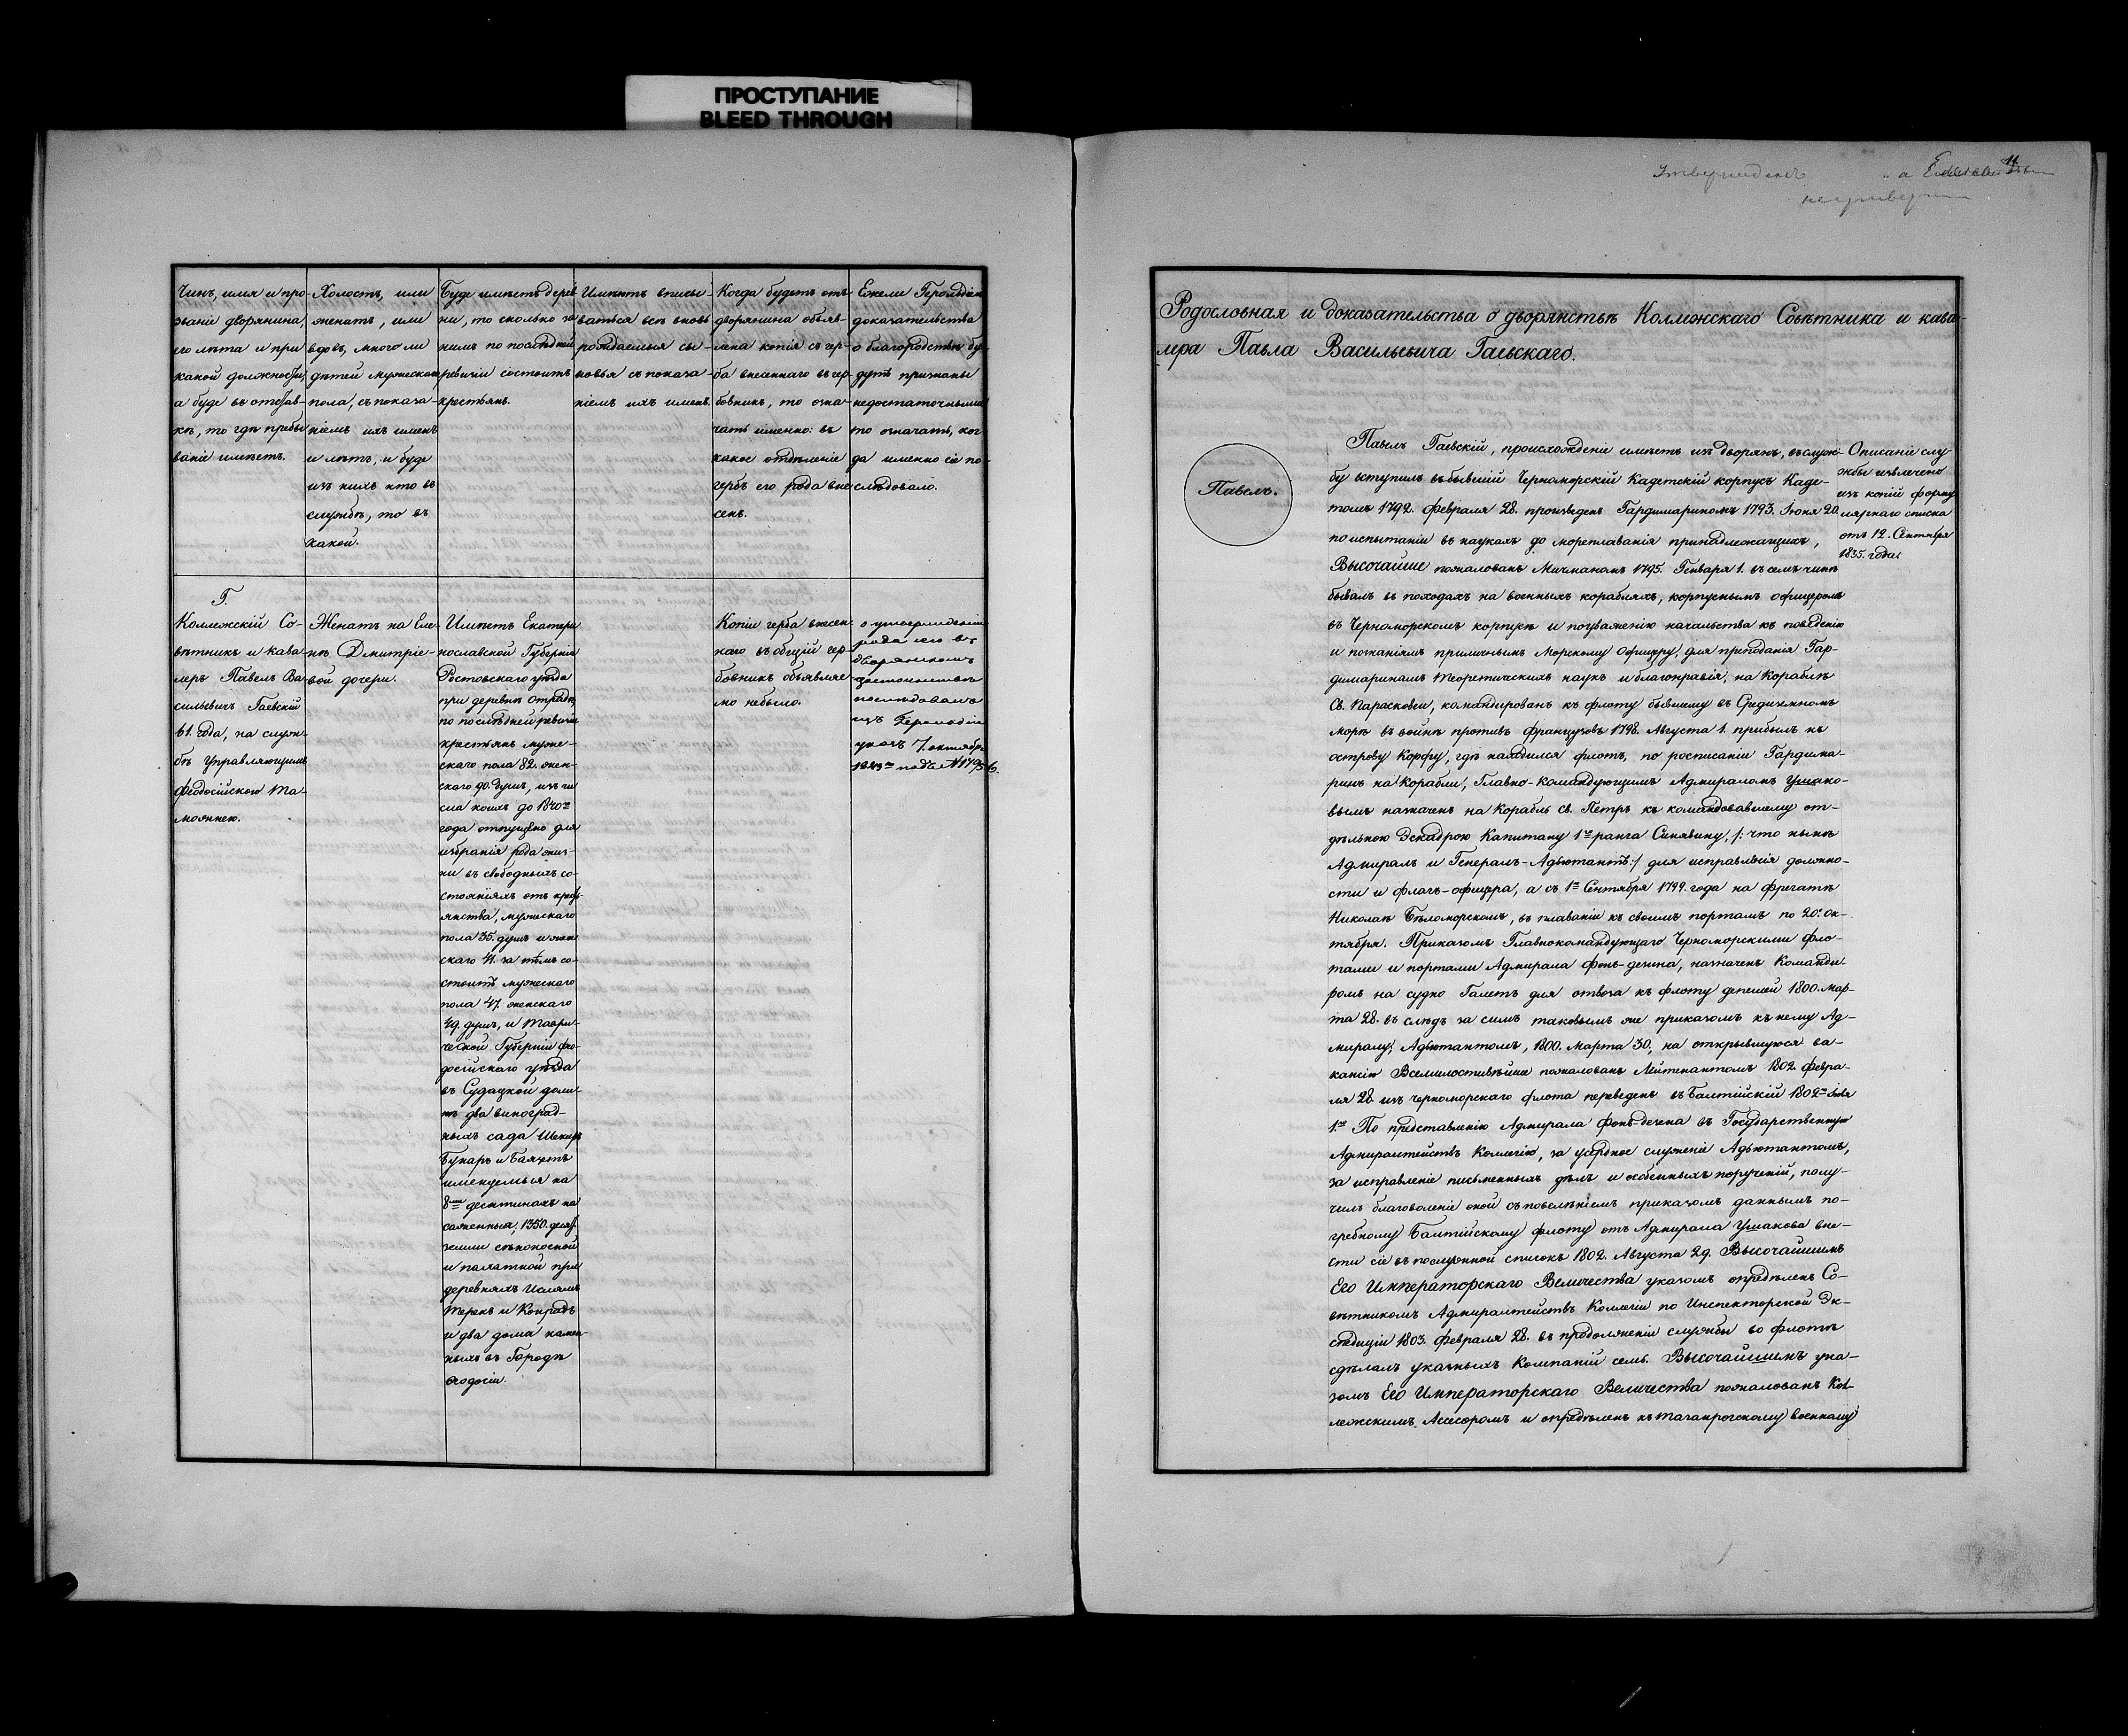 ПРОСТУПАНИЕ
BLEED THROUGH
Чинъ, имя и про-
званіе дворянина,
его лѣта и при
какой должности,
а буде въ отстав-
кѣ, то гдѣ пребы
ваніе имѣетъ.
Холостъ, или
женатъ, или
вдовъ, много ли
дѣтей мужескаго
пола, съ показа-
ніемъ ихъ именъ
и лѣтъ, и буде
изъ нихъ кто въ
службѣ, то въ
какой.
Буде имѣетъ дерев
ни, то сколько за
нимъ по послѣдней
ревизіи состоитъ
крестьянъ.
Имѣютъ вписы-
ваться всѣ вновь
рождаемыя сы-
новья съ показа-
ніемъ ихъ именъ.
Когда будетъ отъ
дворянина объяв-
лена копія съ гер-
ба внесеннаго въ гер
бовникъ, то озна-
чать именно: въ
какое отдѣленіе
гербъ его рода вне
сенъ.
Ежели Герольдіею
доказательства
о благородствѣ бу-
дутъ признаны
недостаточными
то означать, ког
да именно сіе по-
слѣдовало.
Г.
Коллежскій Со-
вѣтникъ и Кава
леръ Павелъ Ва-
сильевичъ Гаевскій
61. года, на служ-
бѣ Управляющимъ
Феодосійскою Та-
можнею.
Женатъ на Еле-
нѣ Дмитріе-
вой дочери.
Имѣетъ Екатери
нославской Губерніи
Ростовскаго уѣзда
при деревнѣ Отрадѣ,
по послѣдней ревизіи
крестьянъ муже-
скаго пола 82. жен-
скаго 90. душъ, изъ чи
сла коихъ до 1840го
года отпущено для
избранія рода жиз-
ни въ свободныхъ со-
стояніяхъ отъ крест
янства, мужескаго
пола 35. душъ и жен
скаго 41. за тѣмъ со-
стоитъ мужескаго
пола 47. женскаго
49. душъ, и Таври-
ческой Губерніи Фео-
досійскаго уѣзда
въ Судацкой доли-
нѣ два виноград-
ныхъ сада
именуемыя на
8ми десятинахъ на
саженныя, 1350. десят.
земли сѣнокосной
и пахатной при
деревняхъ Исламъ
Терекъ и Конратъ
и два дома камен-
ныхъ въ Городѣ
Ѳеодосіи.
Копіи герба внесен
наго въ общій гер-
бовникъ объявле
но небыло.
о утвержденіи
рода его въ
дворянскомъ
достоинствѣ
послѣдовалъ
изъ Герольдіи
указъ 7. октября
11
Утвержденъ а
неутвер
Родословная и доказательства о дворянствѣ Коллежскаго Совѣтника и кава-
лера Павла Васильевича Гаевскаго.
Павелъ.
Павелъ Гаевскій, происхожденіе имѣетъ изъ дворянъ, въ служ-
бу вступилъ въ бывшій Черноморскій Кадетскій корпусъ Каде-
томъ 1792. февраля 28. произведенъ Гардимариномъ 1793. Іюня 20.
по испытаніи въ наукахъ до мореплаванія принадлежащихъ,
Высочайше пожалованъ Мичманомъ 1795. Генваря 1. въ семъ чинѣ
бывалъ въ походахъ на военныхъ корабляхъ, корпуснымъ офицеромъ
въ Черноморскомъ корпусѣ и по уваженію начальства къ поведенію
и познаніямъ приличнымъ Морскому Офицеру, для преподанія Гар-
димаринамъ теоретическихъ наукъ и благонравія, на Кораблѣ
Св. Парасковеи, командированъ къ флоту бывшему въ Средиземномъ
морѣ въ войнѣ противъ французовъ 1798. Августа 1. прибылъ къ
острову Корфу, гдѣ находился флотъ, по росписаніи Гардима-
ринъ на Корабли, Главно-Командующимъ Адмираломъ Ушако-
вымъ назначенъ на Корабль Св. Петръ къ командовавшему от-
дѣльною Эскадрою Капитану 1го ранга Синявину, /: что нынѣ
Адмиралъ и Генералъ-Адъютантъ:/ для исправленія должно-
сти и флагъ-офицера, а съ 1го Сентября 1799. года на фрегатѣ
Николаѣ Бѣломорскомъ, въ плаваніи къ своимъ портамъ по 20е Ок-
тября. Приказомъ Главнокомандующаго Черноморскими фло-
тами и портами Адмирала фонъ-дезина, назначенъ Команди
ромъ на судно Галетъ для отвоза къ флоту депешей 1800. Мар-
та 28. въ слѣдъ за симъ таковымъ же приказомъ къ нему Ад-
миралу, Адъютантомъ, 1800. Марта 30., на открывшуюся ва-
кансію Всемилостивѣйше пожалованъ Лейтенантомъ 1802. февра-
ля 28 изъ черноморскаго флота переведенъ въ Балтійскій 1802го
1го По представленію Адмирала фонъ-дезена въ Государственную
Адмиралтействъ Коллегію, за усердное служеніе Адъютантомъ,
за исправленіе письменныхъ дѣлъ и особенныхъ порученій, полу-
чилъ благоволеніе оной съ повелѣніемъ приказомъ даннымъ по-
гребному Балтійскому флоту отъ Адмирала Ушакова вне-
сти сіе въ послужной списокъ 1802. Августа 29. Высочайшимъ
Его Императорскаго Величества указомъ опредѣленъ Со-
вѣтникомъ Адмиралтействъ Коллегіи по Инспекторской Эк-
спедиціи 1803. Февраля 28. въ продолженіи службы во флотѣ
сдѣлалъ указныхъ Компаній семь. Высочайшимъ ука-
зомъ Его Императорскаго Величества пожалованъ Кол-
лежскимъ Асесоромъ и опредѣленъ къ таганрогскому военному
Описаніе слу-
жбы извлечено
изъ копій форму
лярнаго списка
отъ 12. Сентября
1835. года.